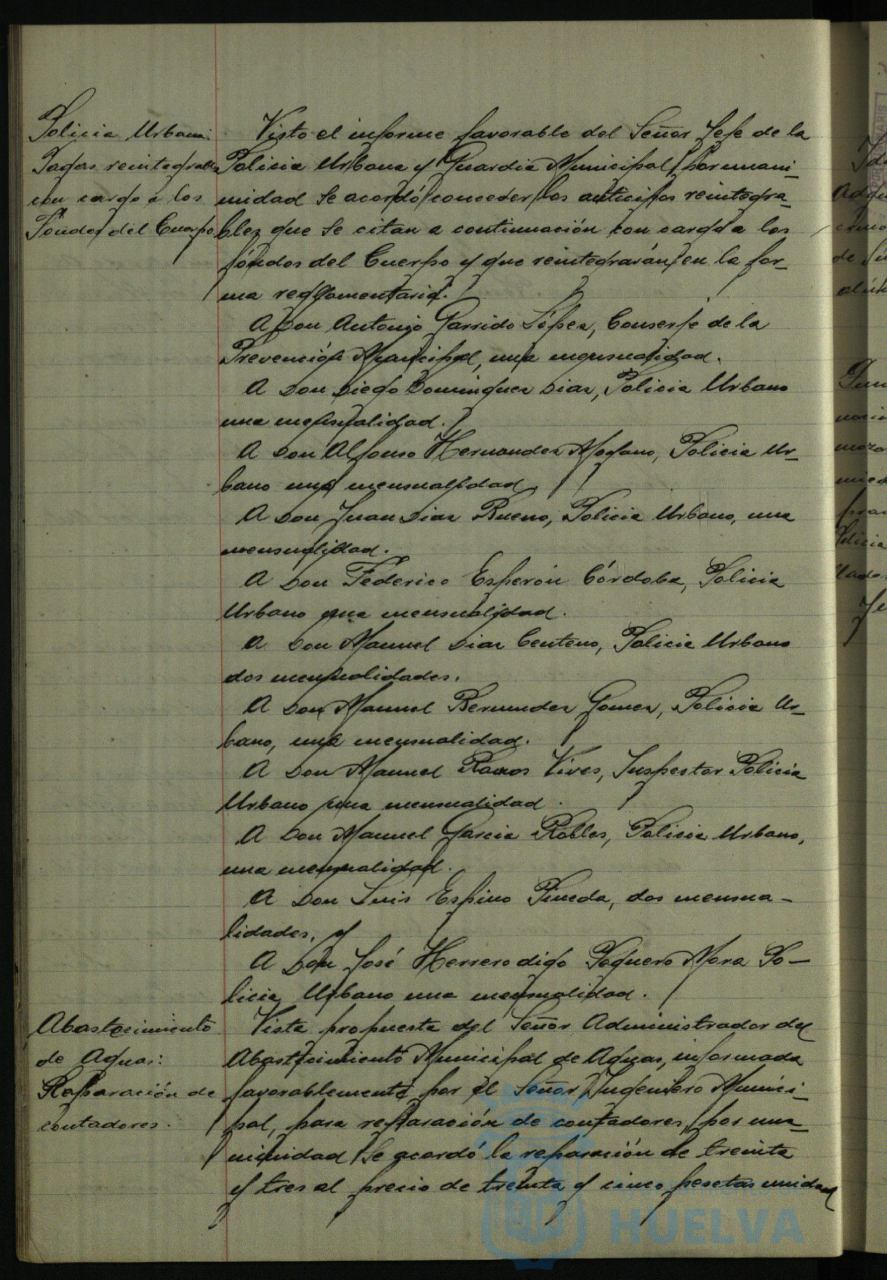 Policia Urbana:
Pagas reintegrables
con cargo a los
Fondos del Cuerpo
Visto el informe favorable del Señor Jefe de la
Policia Urbana y Guardia Municipal, por unani-
midad se acordó conceder los anticipos reintegra-
bles que se citan a continuación con cargo a los
fondos del Cuerpo y que reintegrarán en la for-
ma reglamentaria.
A Don Antonio Garrido López, Conserje de la
Prevención Municipal, una mensualidad.
A Don Diego Dominguez Diaz, Policia Urbano
una mensualidad.
A Don Alfonso Hernandez, Policia Ur-
bano una mensualidad.
A Don Juan Diaz Bueno, Policia Urbano, una
mensualidad.
A Don Federico Esperón Córdoba, Policia
Urbano una mensualidad.
A Don Manuel Diaz Centeno, Policia Urbano
dos mensualidades.
A Don Manuel Bermudez Gomez, Policia Ur-
bano, una mensualidad.
A Don Manuel Ramos Vives, Inspector Policia
Urbano una mensualidad.
A Don Manuel Garcia Robles, Policia Urbano,
una mensualidad.
A Don Luis Espino Pineda, dos mensua-
lidades, y
A Don José Herrero digo Poquero Mora Po-
licia Urbano una mensualidad.
Abastecimiento
de Aguas:
Reparación de
contadores.
Vista propuesta del Señor Administrador del
Abastecimiento Municipal de Aguas, informada
favorablemente por el Señor Ingeniero Munici-
pal, para reparación de contadores, por una-
nimidad se acordó la reparación de treinta
y tres al precio de treinta y cinco pesetas unidad
HUELVA